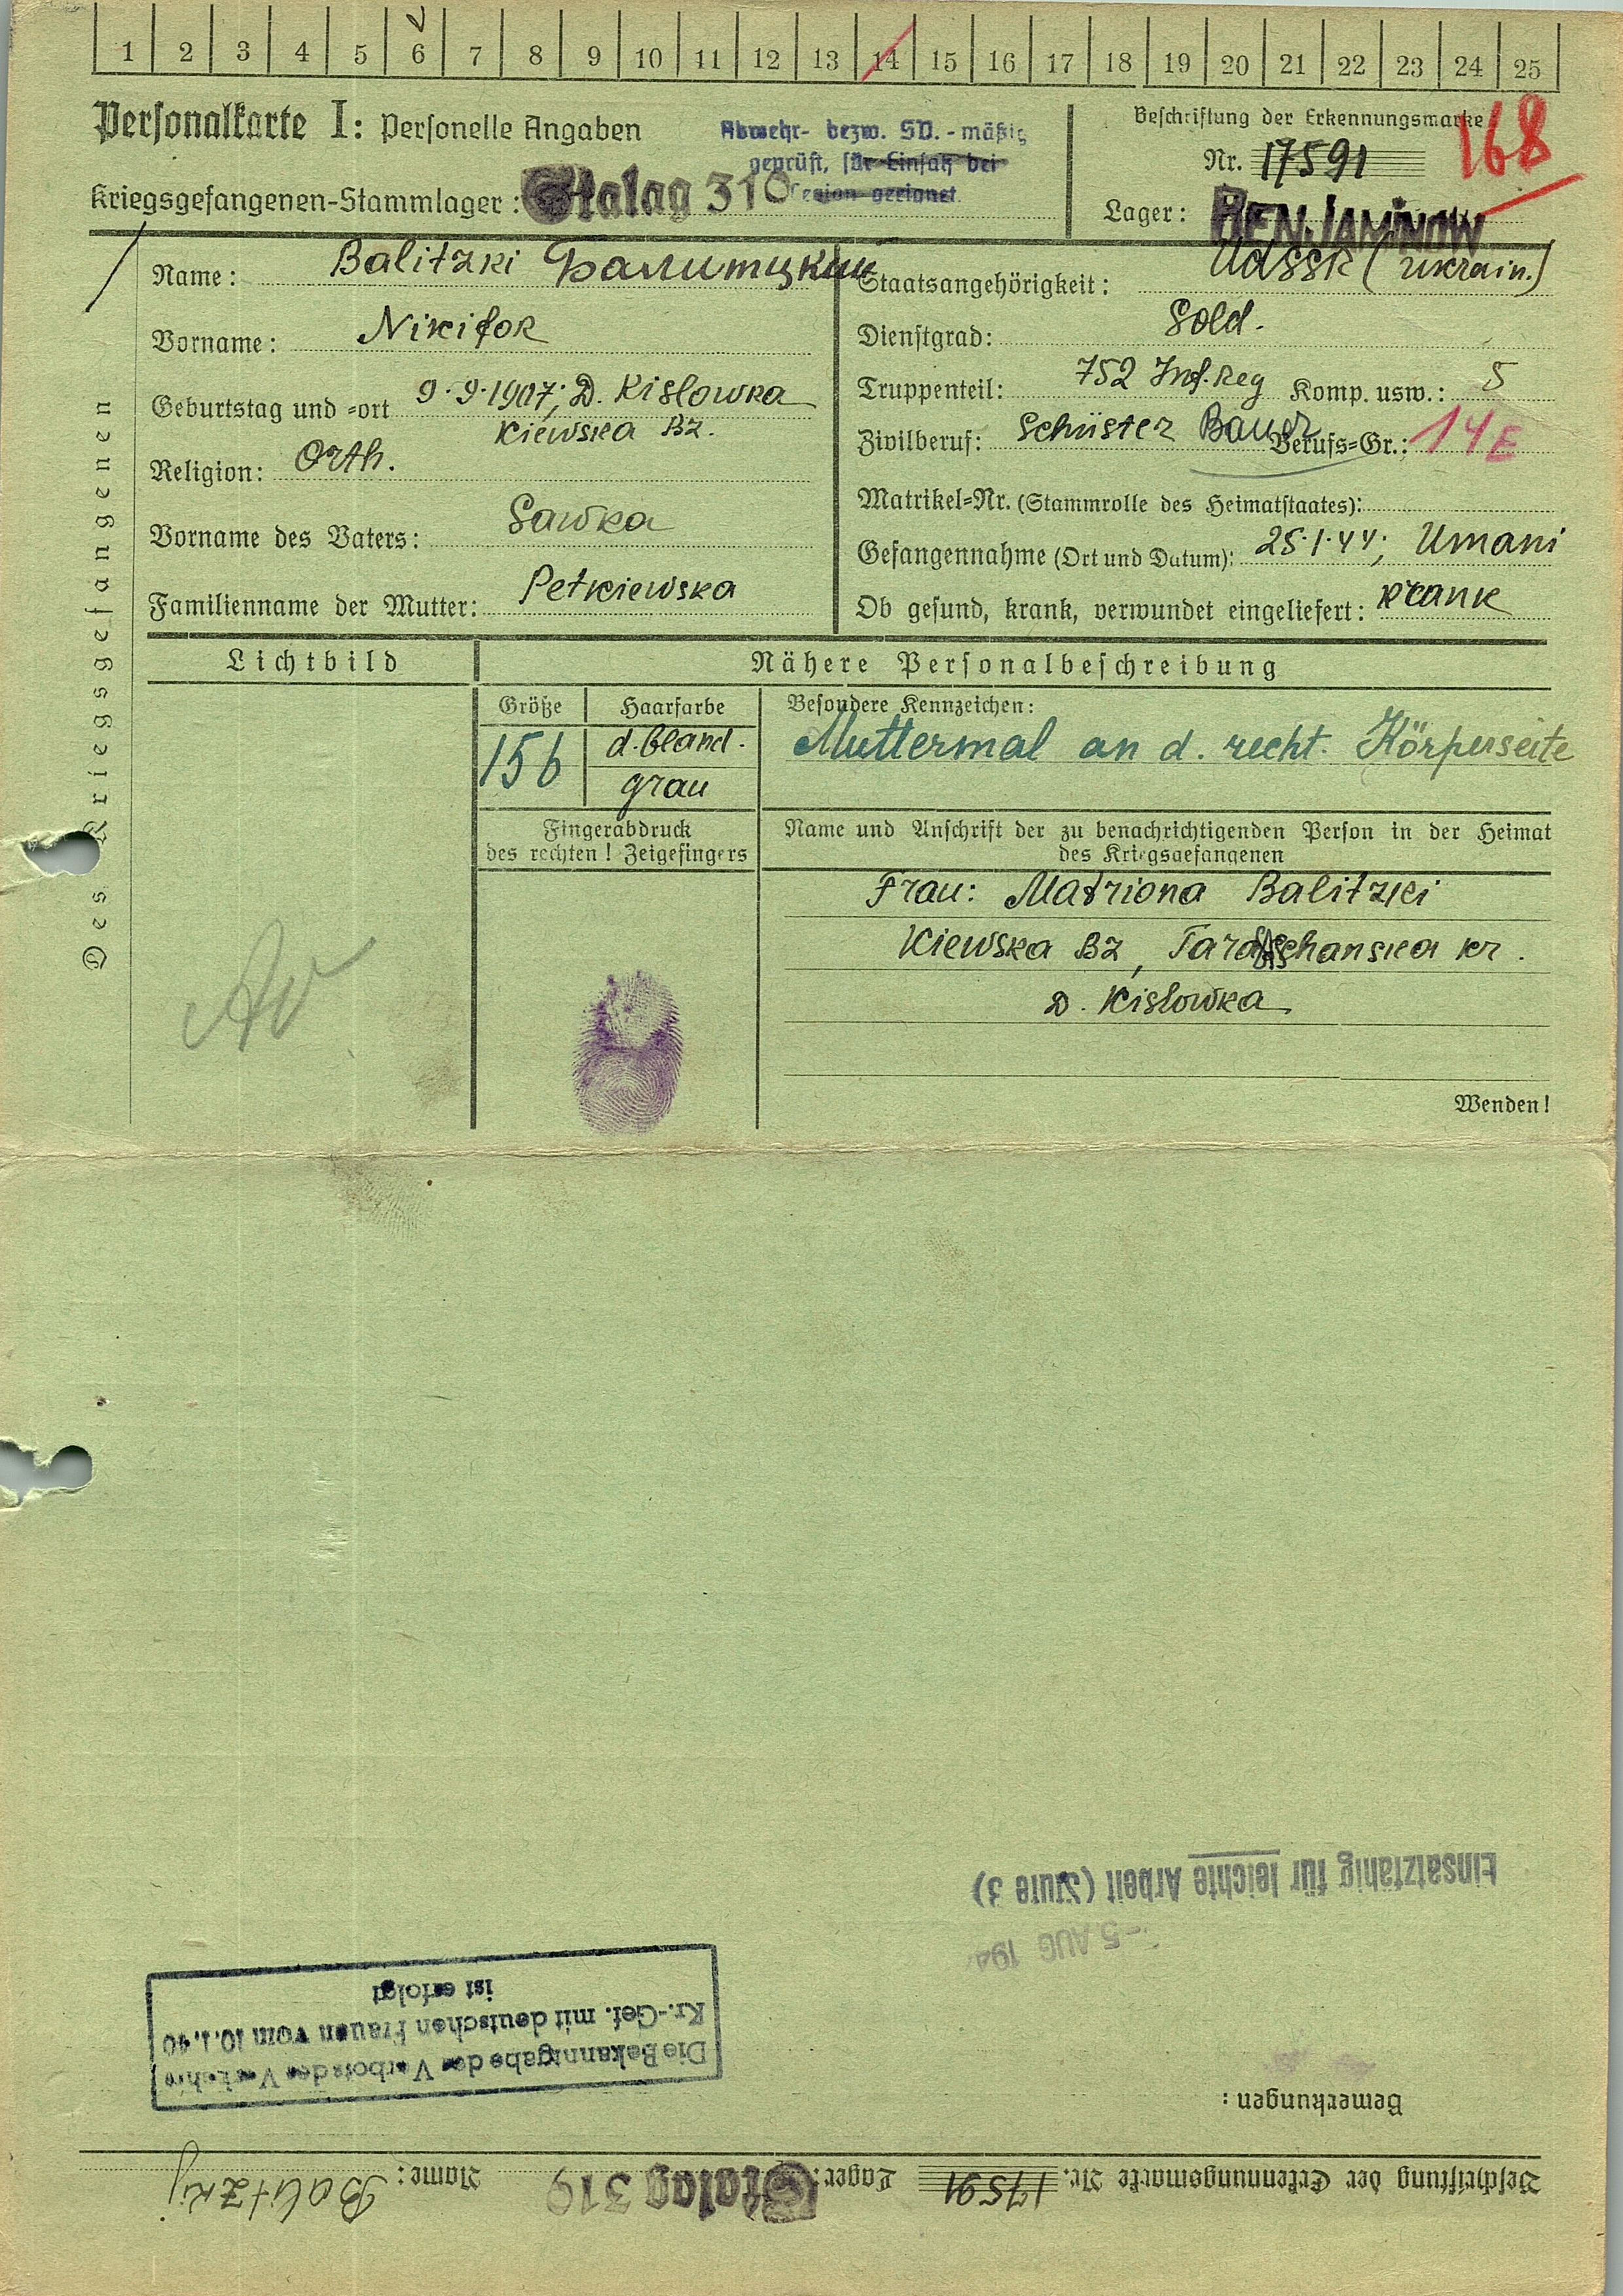 1 2 3 4 5 6 7 8 9 10 11 12 13 14 15 16 17 18 19 20 21 22 23 24 25
Personalkarte I: Personelle Angaben
Abwehr- bezw. SD.-mäßig
geprüft, für Einsatz bei
Legion geeignet
Kriegsgefangenen-Stammlager: Stalag 310
Beschriftung der Erkennungsmarke
Nr. 17591
168
Lager: BENJAMINOW
Des Kriegsgefangenen
Name: Balitzki Балитцкий
Vorname: Nikifor
Geburtstag und =ort 9.9.1907; D. Kislowka
Kiewska Bz.
Religion: Orth.
Vorname des Vaters: Sawka
Familienname der Mutter: Petkiewska
Staatsangehörigkeit: UdSSR (Ukrain.)
Dienstgrad: Sold.
Truppenteil: 752 Inf. Reg Komp. usw.: 5
Zivilberuf: Schüster Bauer Berufs=Gr.: 14 E
Matrikel=Nr. (Stammrolle des Heimatstaates):
Gefangennahme (Ort und Datum): 25.1.44; Umani
Ob gesund, krank, verwundet eingeliefert: krank
Lichtbild
Nähere Personalbeschreibung
Größe
Haarfarbe
Besondere Kennzeichen:
156
d.bland.
grau
Muttermal an d. recht. Körperseite
Fingerabdruck
des rechten! Zeigefingers
Name und Anschrift der zu benachrichtigenden Person in der Heimat
des Kriegsgefangenen
Frau: Matriona Balitzki
Kiewska Bz, Taraschanska kr.
D. Kislowka
Wenden!
Einsatzfähig für leichte Arbeit (Stufe 3)
-5. AUG 194
Die Bekanntgabe des Verbots des Verkehrs
Kr.-Gef. mit deutschen Frauen vom 10.1.40
ist erfolgt
Bemerkungen:
Beschriftung der Erkennungsmarke Nr. 17591 Lager: Stalag 310 Name: Balitzkij